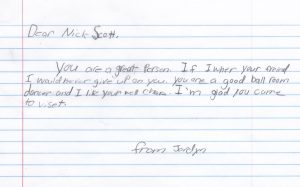 Dear Nick Scott,
You are a great Person. If I wher your freind
I would never give up on you. you are a good ball room
dancer and I like your well chair. I'm glad you came
to viset.
from Jordyn